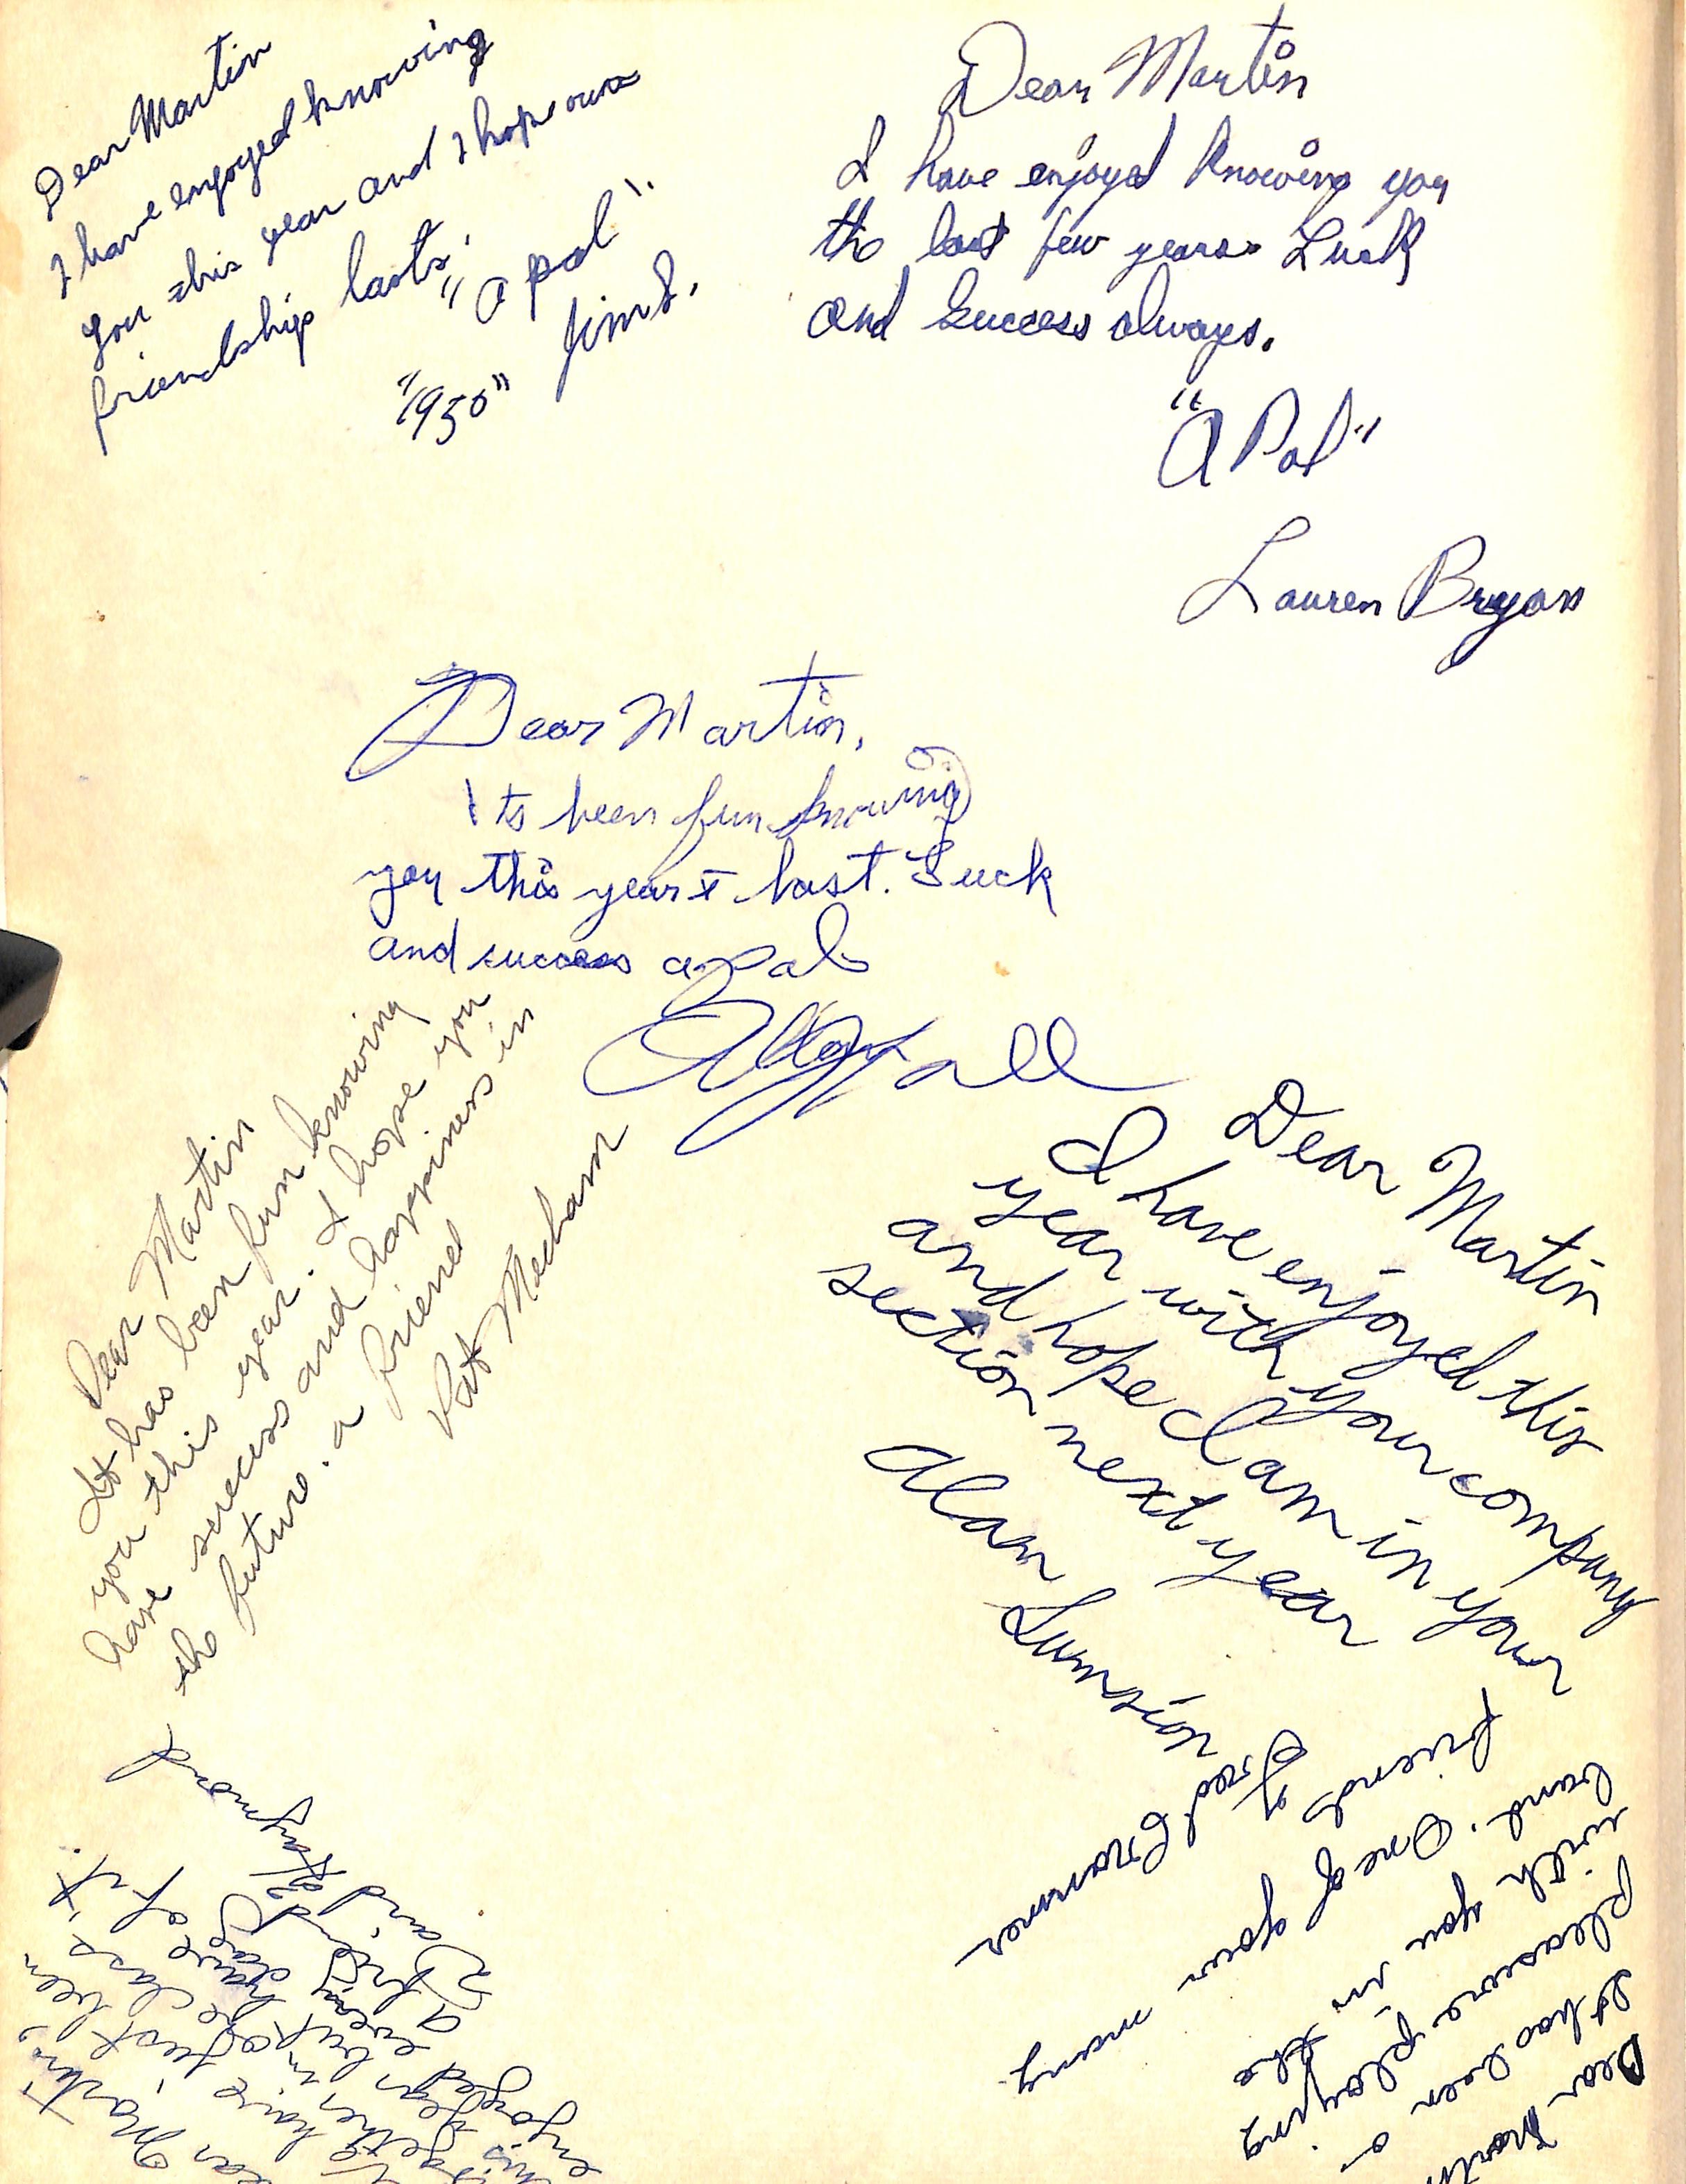 Dear Martin
I have enjoyed knowing
you this year and I hope our
friendship lasts.
"a pal".
Jim S.
"1950"
Dear Martin
I have enjoyed knowing you
the last few years. Luck
and Success always.
"A Pal"
Lauren Bryan
Dear Martin,
Its been fun knowing
you this year + last. Luck
and success a pal
Dear Martin
It has been fun knowing
you this year. I hope you
have success and happiness in
the future. a friend
Pat Mecham
Dear Martin
I have enjoyed this
year with your company
and hope I am in your
section next year
Alan Lumsion
Dear Martin
It has been a
pleasure playing
with you in the
band. One of your many
friends
Fred Cranmer
Dear Martin,
We have just been
together in one class
this year but I have
enjoyed every day of it.
A friend
David Raymond